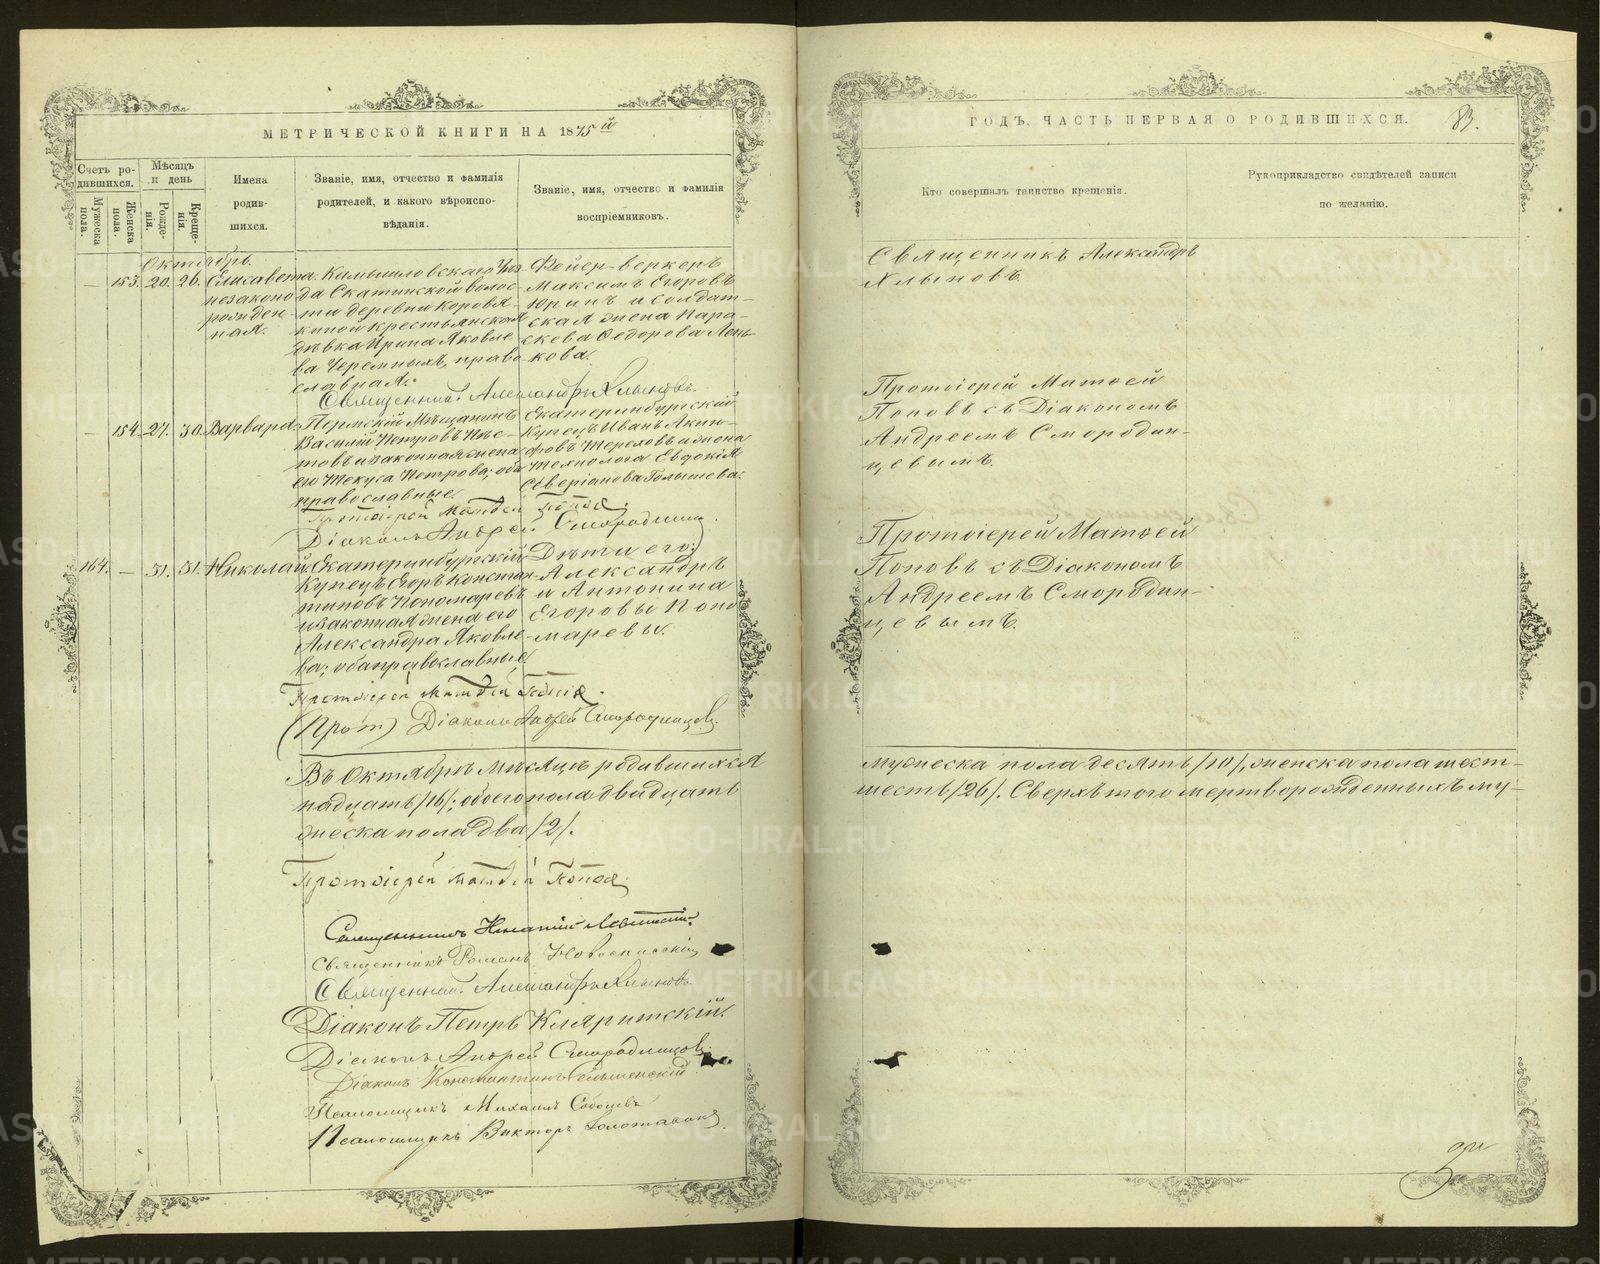 МЕТРИЧЕСКОЙ КНИГИ НА 1875й
Счетъ родившихся.
Мѣсяцъ и день
Имена родившихся.
Званіе, имя, отчество и фамилія родителей, и какого вѣроисповѣданія.
Званіе, имя, отчество и фамилія воспріемниковъ.
Мужеска пола.
Женска пола.
Рожденія.
Крещенія.
Октябрь.
— 153. 20. 26. Елисавета
незаконо
рожден-
ная.
Камышловскаго Уѣз-
да Скатинской волос-
ти деревни Коровя-
киной крестьянская
дѣвка Ирина Яковле
ва Черемныхъ, право
славная.
Фейерверкеръ
Максимъ Егоровъ
Юринъ и солдат-
ская жена Пара-
скова Федорова Лень
кова.
Священникъ Александръ Хлыновъ.
— 154. 27. 30. Варвара
Пермскій Мѣщанинъ
Василій Петровъ Пѣс-
товъ и законная жена
его Текуса Петрова; оба
православные.
Екатеринбургскій
Купецъ Иванъ Акин-
фовъ Тереховъ и жена
технолога Евдокія
Северіанова Голышева.
Протоіерей Матѳей Поповъ
Діаконъ Андрей Смородинцовъ.
164. — 31. 31. Николай
Екатеринбургскій
Купецъ Егоръ Констан-
тиновъ Пономаревъ
и законная жена его
Александра Яковле-
ва; оба православные
Дѣти его:
Александръ
и Антонина
Егоровы Поно
маревы.
Протоіерей Матѳей Поповъ.
(Прот) Діаконъ Андрей Смородинцовъ.
Въ Октябрѣ мѣсяцѣ родившихся
надцать /16/; обоего пола двадцать
жеска пола два /2/.
Протоіерей Матѳей Поповъ
Священникъ Игнатій Левитскій.
Священникъ Романъ Новоспасскій
Священникъ Александръ Хлыновъ
Діаконъ Петръ Кляритскій.
Діаконъ Андрей Смородинцовъ
Діаконъ Константинъ
Псаломщикъ Михаилъ
Псаломщикъ Викторъ Золотавинъ
ГОДЪ, ЧАСТЬ ПЕРВАЯ О РОДИВШИХСЯ.
83.
Кто совершалъ таинство крещенія.
Рукоприкладство свидѣтелей записи по желанію.
Священникъ Александръ
Хлыновъ.
Протоіерей Матѳей
Поповъ съ Діакономъ
Андреемъ Смородин-
цевымъ.
Протоіерей Матѳей
Поповъ съ Діакономъ
Андреемъ Смородин-
цевымъ.
мужеска пола десять /10/, женска пола шест-
шесть /26/. Сверхъ того мертворожденныхъ му-
METRIKI.GASO-URAL.RU